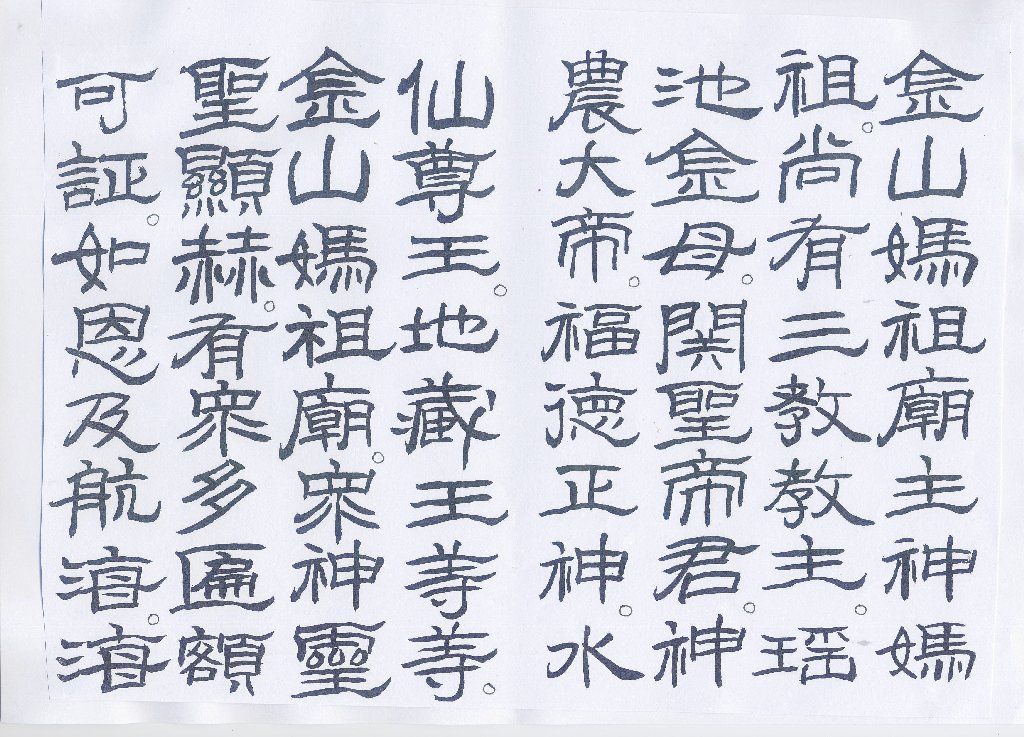 金山媽祖廟主神媽
祖。尚有三教教主。瑶
池金母。関聖帝君。神
農大帝。福徳正神。水
仙尊王。地藏王等等。
金山媽祖廟。眾神靈
聖顯赫。有眾多匾額
可証。如恩及航海。海